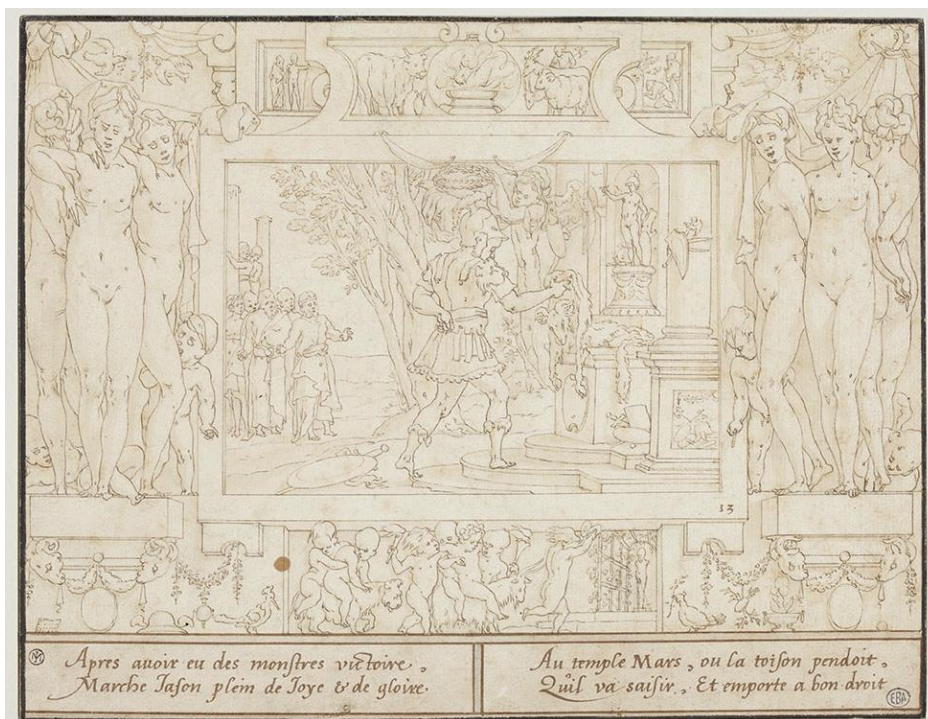 13
Apres auoir eu des monstres victoire,
Marche Iason plein de Ioye & de gloire.
Au temple Mars, ou la toison pendoit,
Qu'il va saisir, Et emporte a bon droit
EBA